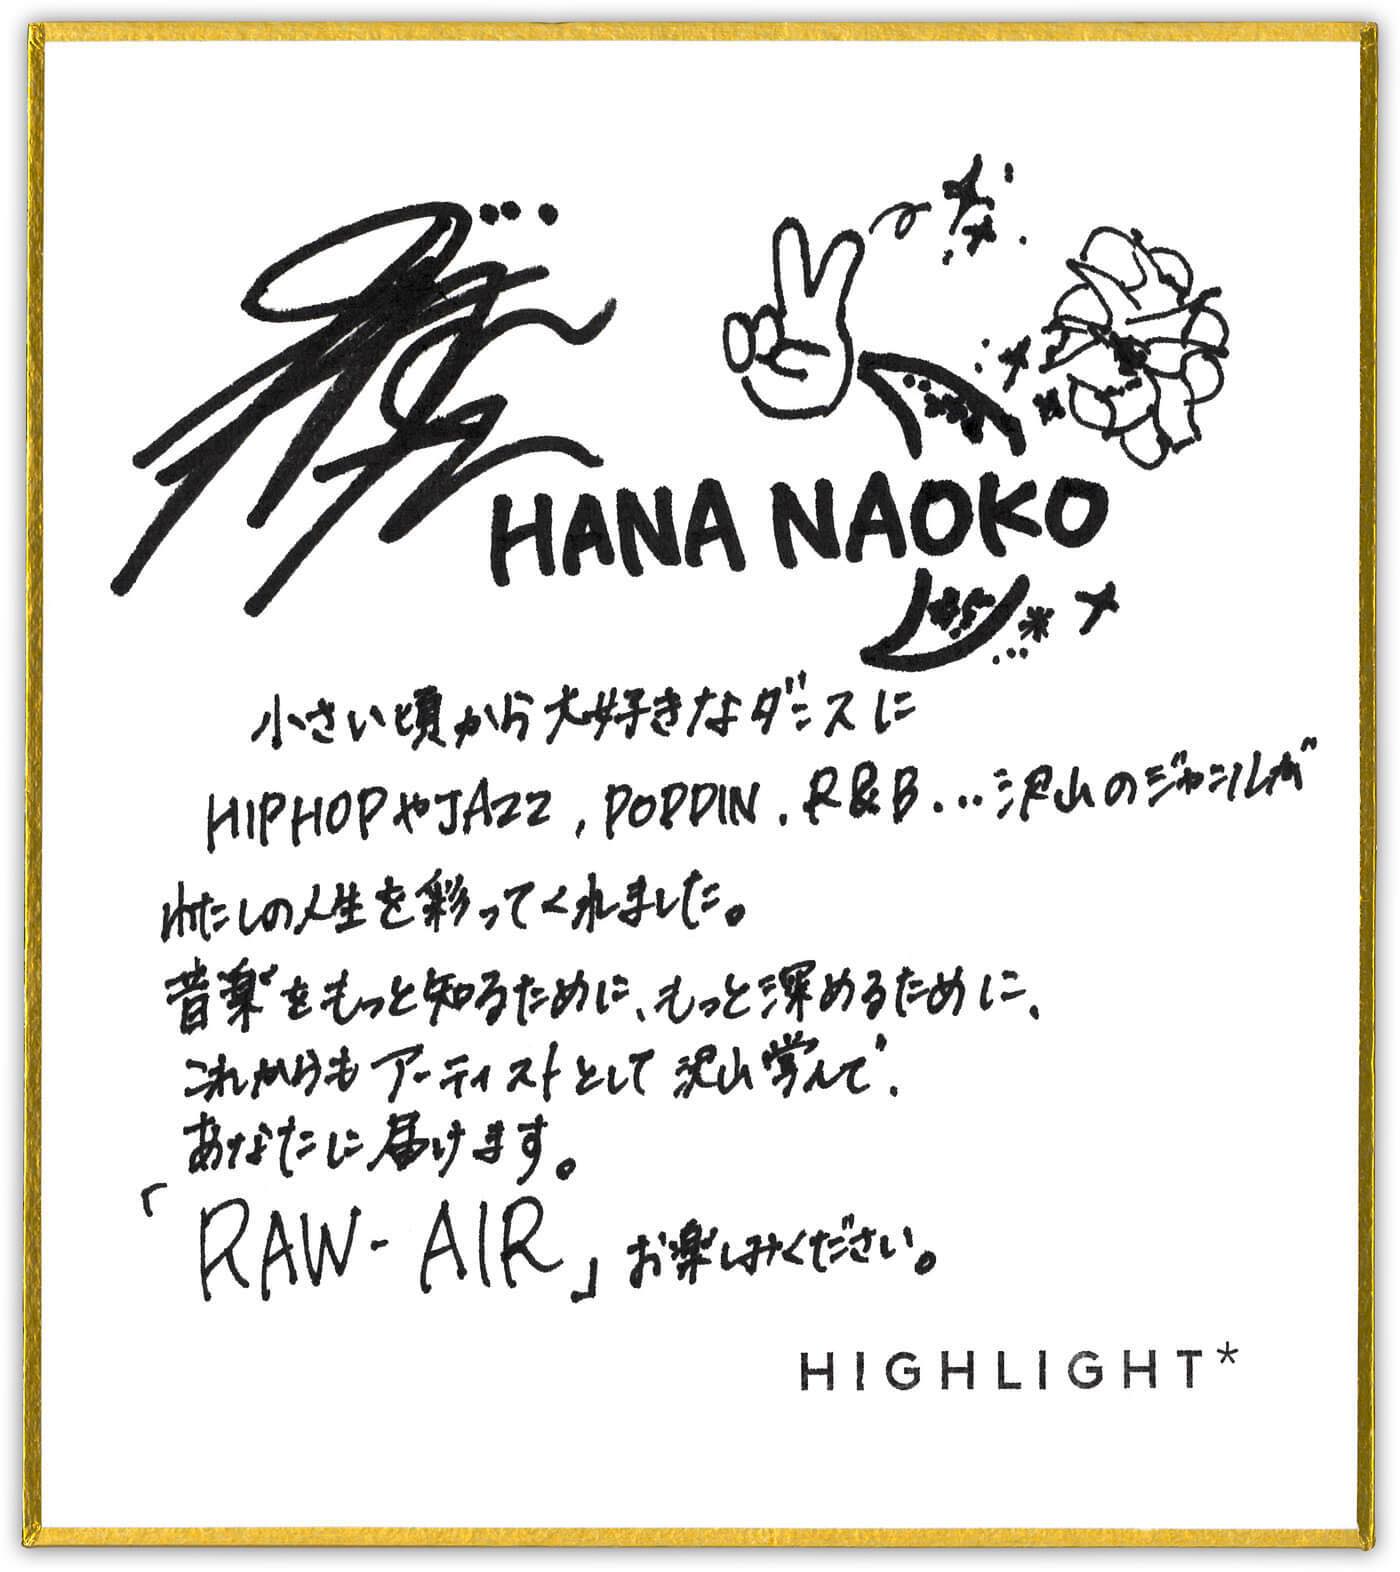 HANA NAOKO
小さい頃から大好きなダンスに
HIPHOPやJAZZ, POPPIN. R&B...沢山のジャンルが
わたしの人生を彩ってくれました。
音楽をもっと知るために、もっと深めるために、
これからもアーティストとして沢山学んで、
あなたに届けます。
「RAW-AIR」お楽しみください。
HIGHLIGHT*